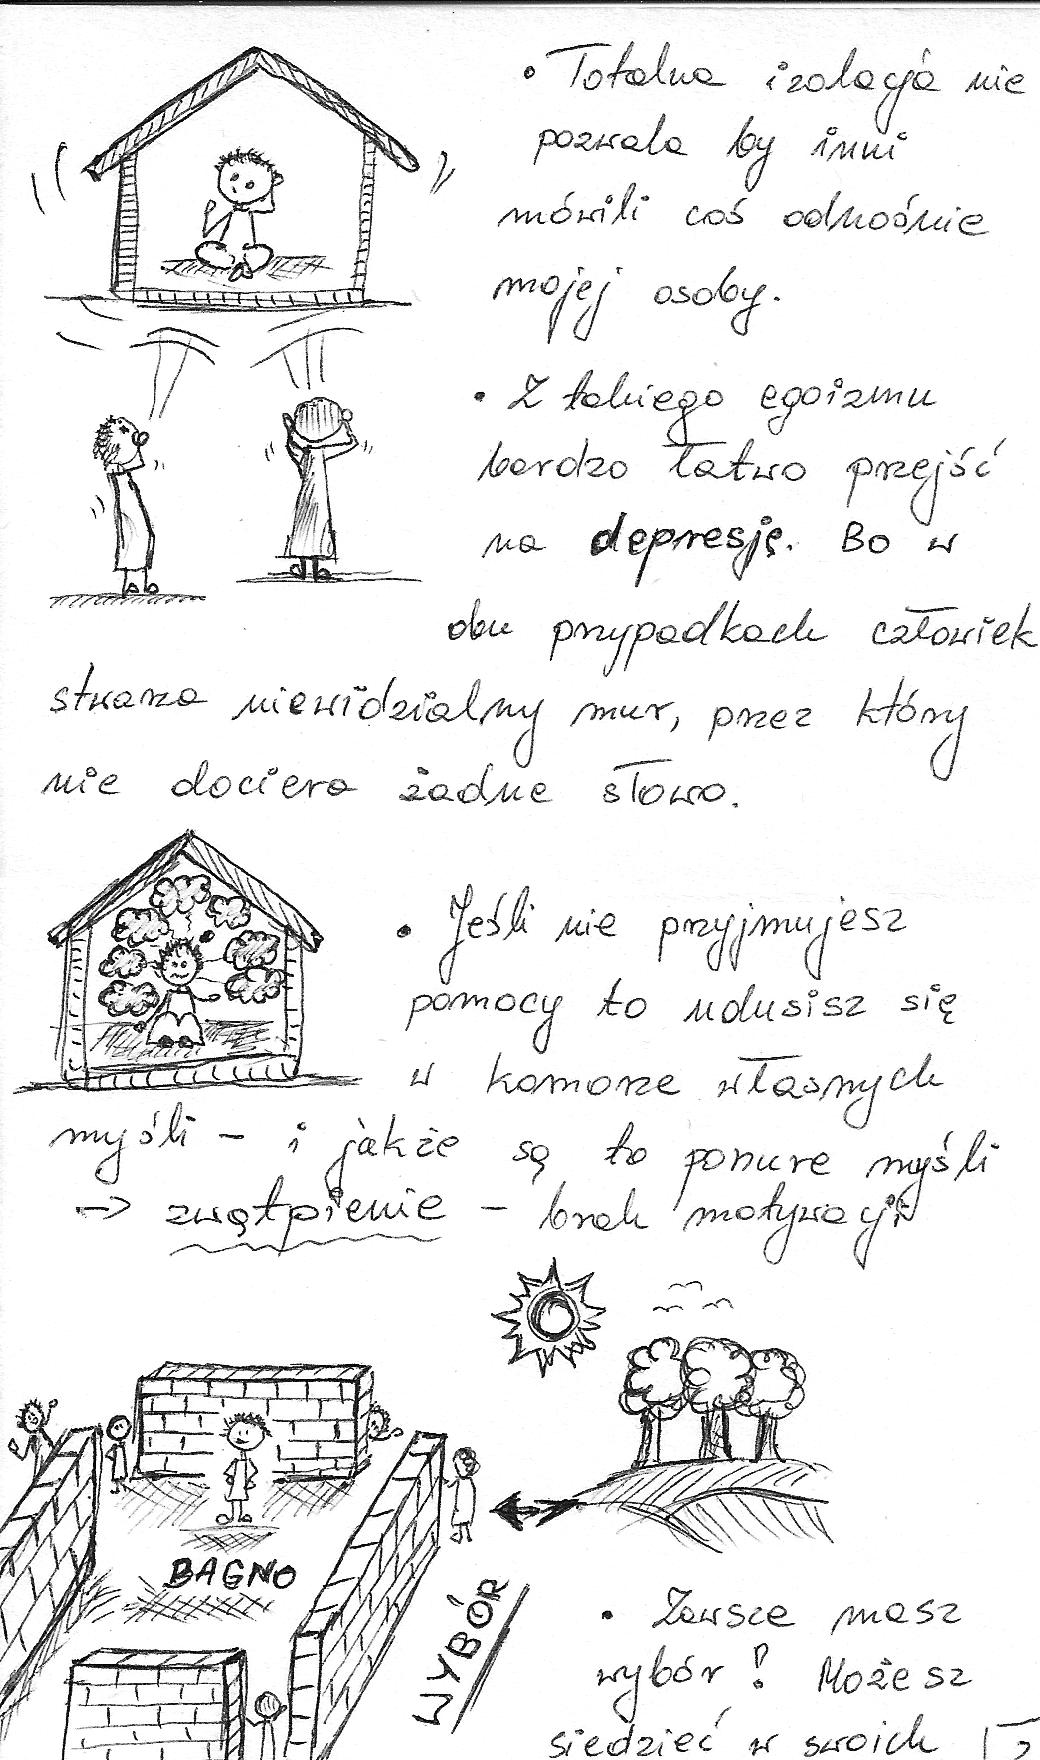 • Totalna izolacja nie
pozwala by inni
mówili coś odnośnie
mojej osoby.
• Z takiego egoizmu
bardzo łatwo przejść
na depresję. Bo w
obu przypadkach człowiek
stwarza niewidzialny mur, przez który
nie dociera żadne słowo.
• Jeśli nie przyjmujesz
pomocy to udusisz się
w komorze własnych
myśli - i jakże są to ponure myśli
-> zwątpienie - brak motywacji
BAGNO
WYBÓR
• Zawsze masz
wybór! Możesz
siedzieć w swoich